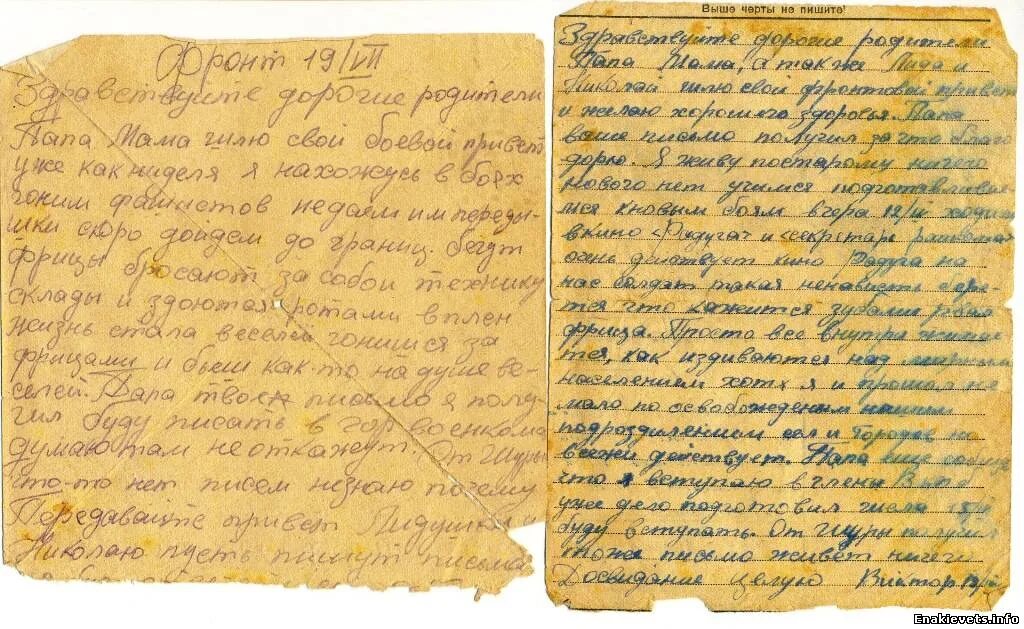 Фронт 19/VII
Здравствуйте дорогие родители
Папа Мама шлю свой боевой привет
уже как ниделя я нахожусь в боях
гоним фашистов недаем им переды-
шки скоро дойдем до границ. бегут
фрицы бросают за собой технику
склады и здоются ротами вплен
жизнь стала веселей гонишся за
фрицами и бьеш как то на душе ве-
селей. Папа твоё письмо я полу-
чил буду писать в горвоенкома
думаю там неоткажут. От Шуры
что-то нет писем незнаю почему
Передавайте привет Лидушке
Николаю пусть пишут письма
Выше черты не пишите!
Здравствуйте дорогие родители
Папа Мама, а также Лида и
Николай шлю свой фронтовой привет
и желаю хорошего здоровья. Папа
ваше письмо получил за что благо
дорю. Я живу постарому ничего
нового нет учимся подготавливае-
мся кновым боям вчера 12/ ходил
вкино "Радуга" и "секретарь райкома"
очень действует кино Радуга на
нас солдат такая ненависть бере-
тся что кажится зубами рвал
фрица. Просто все внутри
тся, как издиваются над мирным
населением хотя я и прошол не
мало по освобожденым нашим
подроздилением сел и городов но
действует. Папа еще
что я вступаю в члены
уже дело подготовил числа 15/
буду вступать. От Шуры получил
тоже письмо живет ничего
Досвидание целую Виктор
Enakievets.info